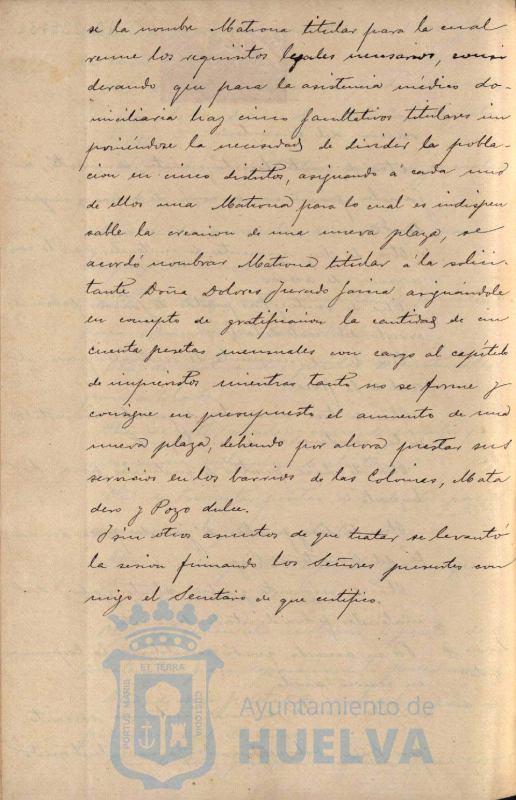 se la nombre Matrona titular para la cual
reune los requisitos legales necesarios, consi
derando que para la asistencia médico do-
miciliaria hay cinco facultativos titulares im
poniéndose la necesidad de dividir la pobla-
cion en cinco distritos, asignando á cada uno
de ellos una Matrona, para lo cual es indispen
sable la creacion de una nueva plaza, se
acordó nombrar Matrona titular á la solici-
tante Doña Dolores Jurado asignándole
en concepto de gratificacion la cantidad de cin
cuenta pesetas mensuales con cargo al capítulo
de imprevistos mientras tanto no se forme y
consigne en presupuesto el aumento de una
nueva plaza, debiendo por ahora prestar sus
servicios en los barrios de las Colonias, Mata
dero y Pozo dulce.
Y sin otros asuntos de que tratar se levantó
la sesion firmando los Señores presentes con
migo el Secretario de que certifico.
PORTUS MARIS ET TERRA CUSTODIA
Ayuntamiento de
HUELVA